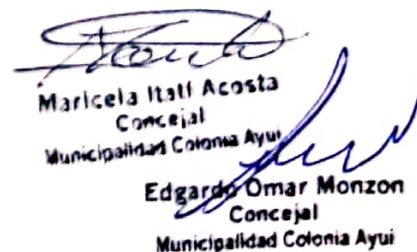 Maricela Itatí Acosta
Concejal
Municipalidad Colonia Ayui
Edgardo Omar Monzon
Concejal
Municipalidad Colonia Ayui